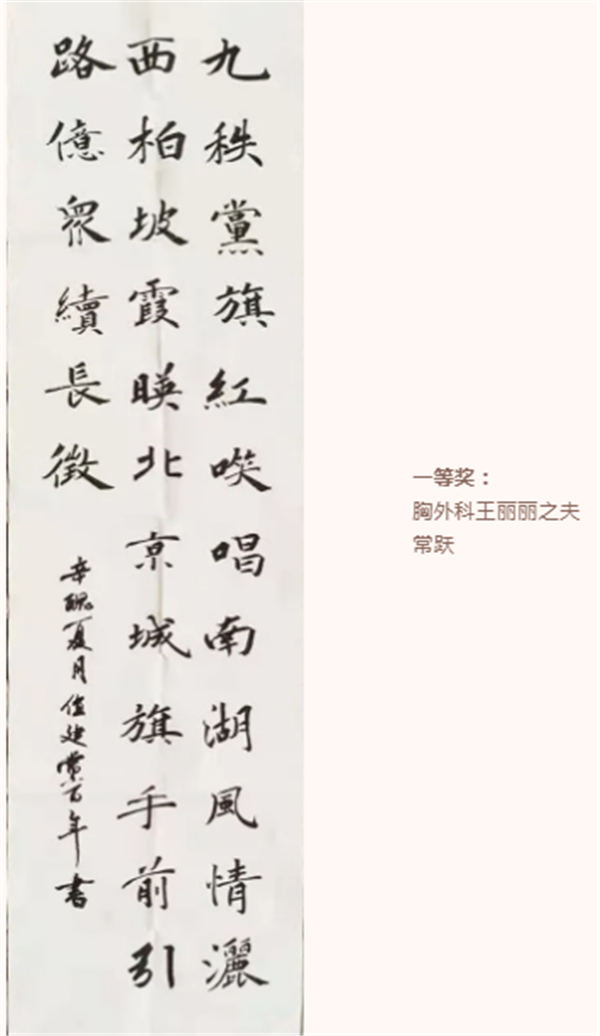 九秩黨旗紅咲唱南湖風情灑
西柏坡霞暎北京城旗手前引
路億眾續長徵
辛醜夏月值建黨百年書
一等奖：
胸外科王丽丽之夫
常跃